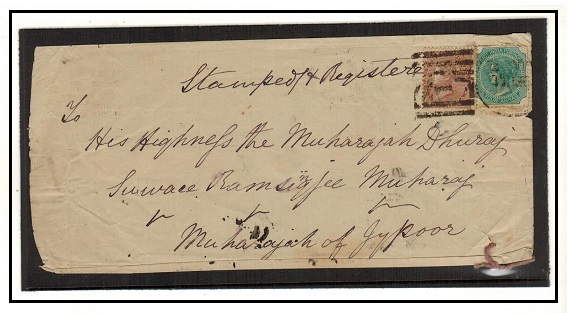 Stamped & Registere
To
His Highness the Muharajah Dhuraj
Suwaee Ramsingjee Muharaj
Muharajah of Jypoor